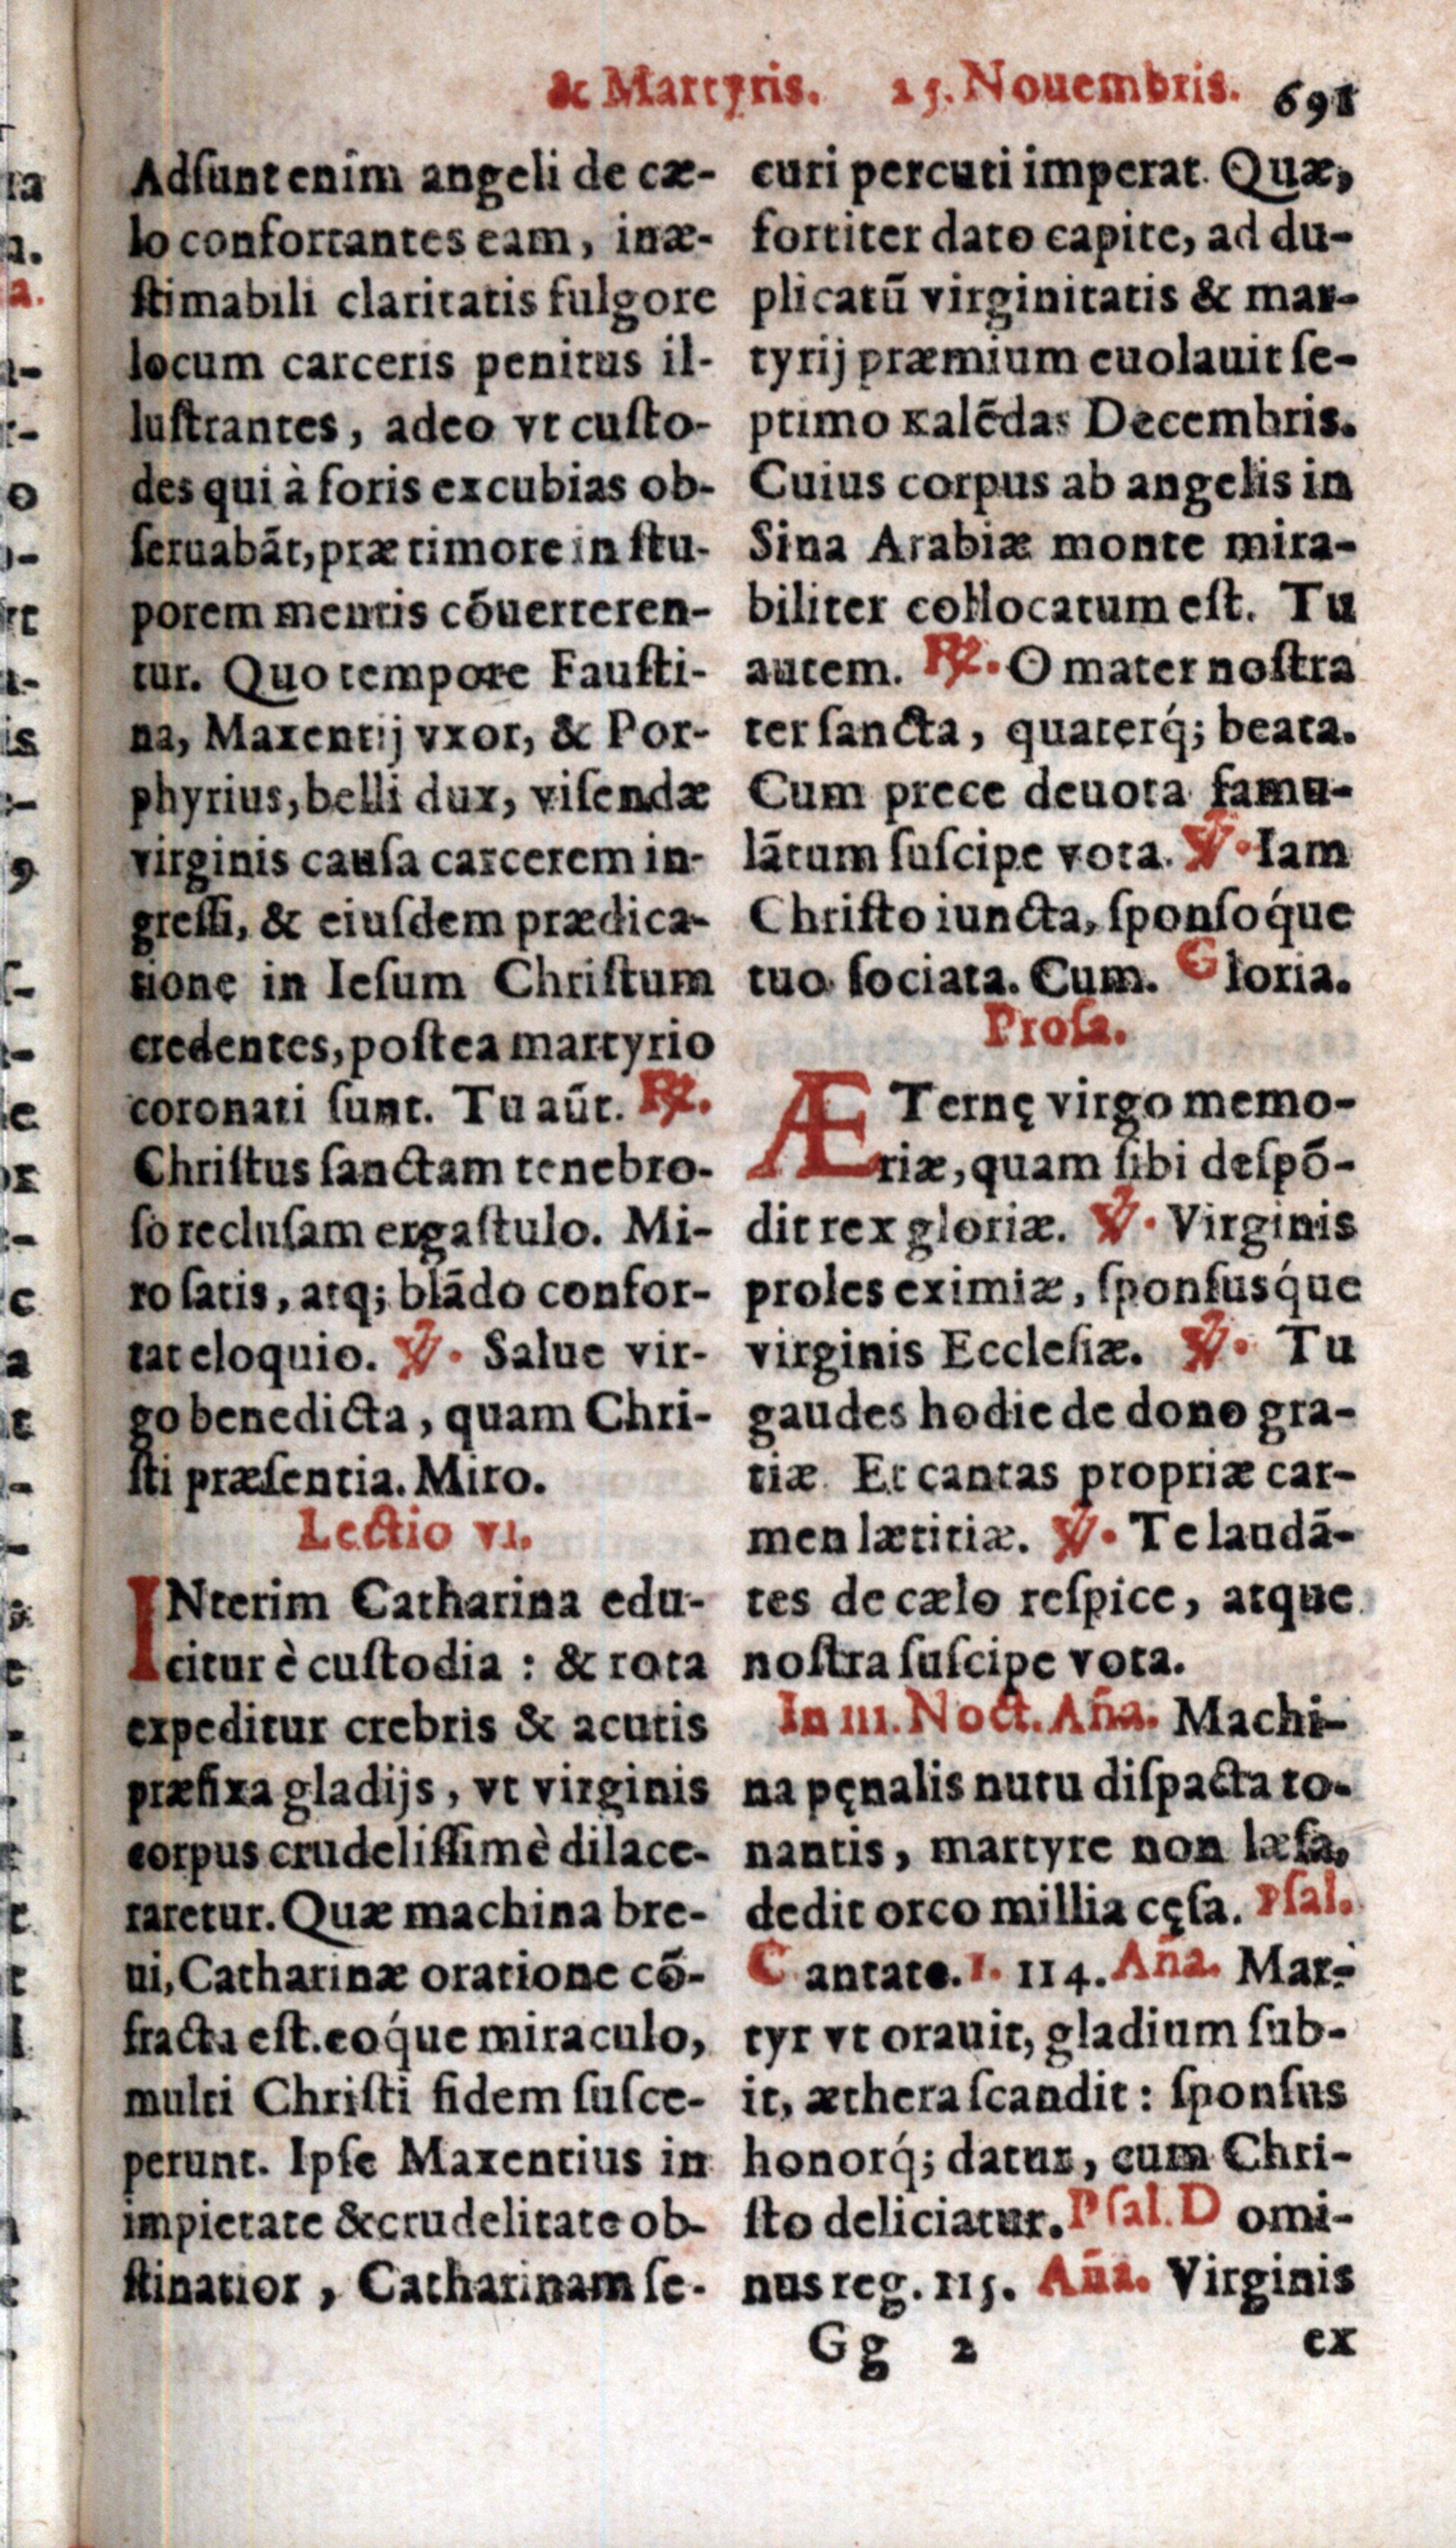 & Martyris. 25. Nouembris. 691
Adſunt enim angeli de cæ-
lo confortantes eam, inæ-
ſtimabili claritatis fulgore
locum carceris penitus il-
luſtrantes, adeo vt cuſto-
des qui à foris excubias ob-
ſeruabãt, præ timore in ſtu-
porem mentis cõuerteren-
tur. Quo tempore Fauſti-
na, Maxentij vxor, & Por-
phyrius, belli dux, viſendæ
virginis cauſa carcerem in-
greſſi, & eiuſdem prædica-
tione in Ieſum Chriſtum
credentes, poſtea martyrio
coronati ſunt. Tu aũt. ℟.
Chriſtus ſanctam tenebro-
ſo recluſam ergaſtulo. Mi-
ro ſatis, atq; blãdo confor-
tat eloquio. ℣. Salue vir-
go benedicta, quam Chri-
ſti præſentia. Miro.
Lectio vi.
INterim Catharina edu-
citur è cuſtodia : & rota
expeditur crebris & acutis
præfixa gladijs, vt virginis
corpus crudeliſſimè dilace-
raretur. Quæ machina bre-
ui, Catharinæ oratione cõ-
fracta eſt. eoq́ue miraculo,
multi Chriſti fidem ſuſce-
perunt. Ipſe Maxentius in
impietate & crudelitate ob-
ſtinatior, Catharinam ſe-
curi percuti imperat. Quæ,
fortiter dato capite, ad du-
plicatũ virginitatis & mar-
tyrij præmium euolauit ſe-
ptimo kalẽdas Decembris.
Cuius corpus ab angelis in
Sina Arabiæ monte mira-
biliter collocatum eſt. Tu
autem. ℟. O mater noſtra
ter ſancta, quaterq́; beata.
Cum prece deuota famu-
lãtum ſuſcipe vota. ℣. Iam
Chriſto iuncta, ſponſoq́ue
tuo ſociata. Cum. Gloria.
Proſa.
ÆTernę virgo memo-
riæ, quam ſibi deſpõ-
dit rex gloriæ. ℣. Virginis
proles eximiæ, ſponſusq́ue
virginis Eccleſiæ. ℣. Tu
gaudes hodie de dono gra-
tiæ. Et cantas propriæ car-
men lætitiæ. ℣. Te laudã-
tes de cælo reſpice, atque
noſtra ſuſcipe vota.
In iii. Noct. Aña. Machi-
na pęnalis nutu diſpacta to-
nantis, martyre non læſa,
dedit orco millia cęſa. Pſal.
Cantate. 1. 114. Aña. Mar-
tyr vt orauit, gladium ſub-
it, æthera ſcandit : ſponſus
honorq́; datur, cum Chri-
ſto deliciatur. Pſal. Domi-
nus reg. 115. Aña. Virginis
Gg 2 ex